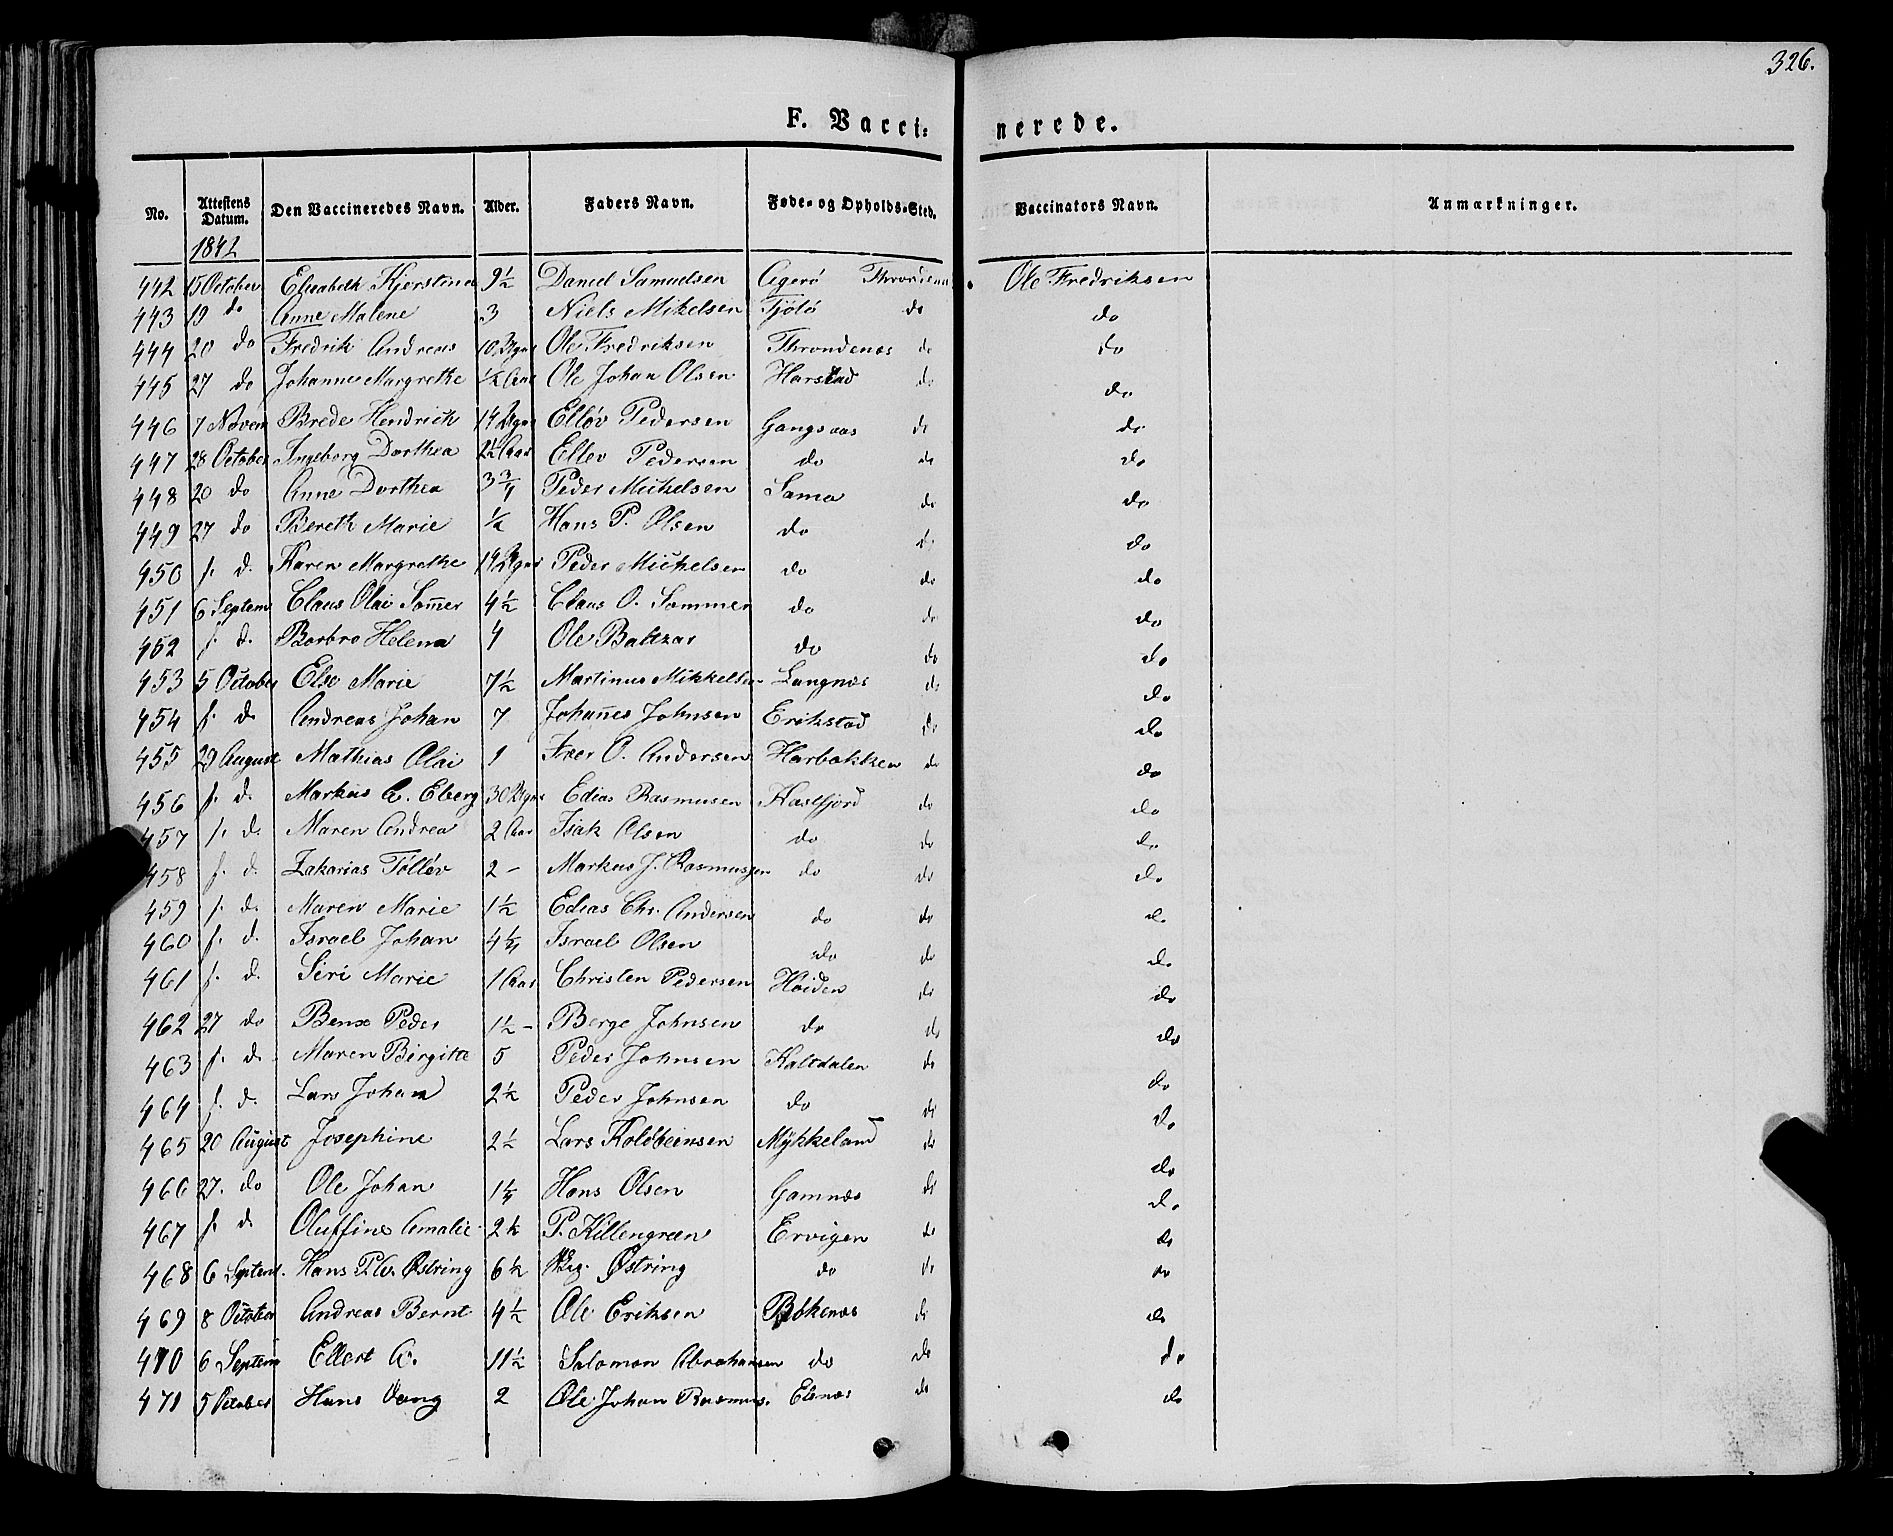 326.
F. Vacci= nerede.
No. Attestens Datum. Den Vaccineredes Navn. Alder. Faders Navn. Føde- og Opholds-Sted. Vaccinators Navn. Anmærkninger.
1842
442 15 October Elisabeth Kjerstina 9½ Daniel Samuelsen Agerö Throndenæs. Ole Fredriksen
443 19 do Anne Malene 3 Niels Mikelsen Tjölö do do
444 20 do Fredrik Andreas 10 Ole Fredriksen Throndenæs do do
445 27 do Johanne Margrethe ½ Aar Ole Johan Olsen Harstad do do
446 7 Novem Brede Hendrich 14 Elløv Pedersen Gangsaas do do
447 28 October Ingeborg Dorthea 2½ Aar Ellev Pedersen do do do
448 20 do Anne Dorthea 3¾ Peder Michelsen Sama do do
449 27 do Bereth Marie ½ Hans P. Olsen do do do
450 f. d. Karen Margrethe 14 Peder Michelsen do do do
451 6 Septem Claus Olai Som̄er 4½ Claus O. Sommer do do do
452 f. d. Barbro Helena 4 Ole Baltzar do do do
453 5 October Else Marie 7½ Martinus Mikkelsen Langnæs do do
454 f. d. Andreas Johan 7 Johan̄es Johnsen Erikstad do do
455 29 August Mathias Olai 1 Iver O. Andersen Harbakken do do
456 f. d. Markus A. Eberg 30 Edias Rasmusen Kasfjord do do
457 f. d. Maren Andrea 2 Aar Isak Olsen do do do
458 f. d. Zakarias Töllöv 2 - Markus J. Rasmussen do do do
459 f. d. Maren Marie 1½ Edias Chr. Andersen do do do
460 f. d. Israel Johan 4¼ Israel Olsen do do do
461 f. d. Siri Marie 1 Aar Christen Pedersen Høiden do do
462 27 do Peder 1½ - Berge Johnsen do do do
463 f. d. Maren Birgitte 5 Peder Johnsen Kaltdalen do do
464 f. d. Lars Johan 2½ Peder Johnsen do do do
465 20 August Josephine 2½ Lars Koldbeensen Mÿkkeland do do
466 27. do Ole Johan 1¼ Hans Olsen Gamnæs do do
467 f. d. Oluffine Amalie 2½ P. Killengreen Ervigen do do
468 6 Septem. Hans Østring 6½ Østring do do do
469 8 October Andreas Bernt 4½ Ole Eriksen Røkenæs do do
470 6 Septem Ellert A. 11½ Salomon Abrahamsen do do do
471 5 October Hans Vang 2 Ole Johan Rasmus. Elenæs do do